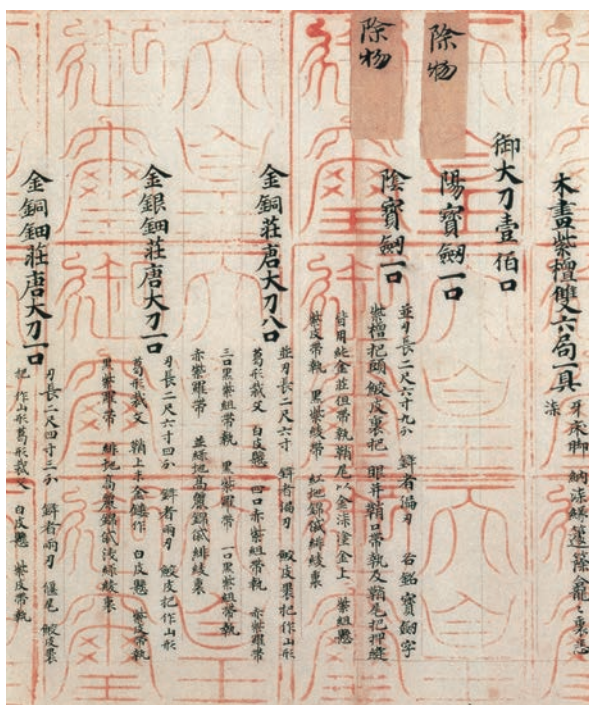 木畫紫檀雙六局一具
牙床脚 納漆縁籧篨龕〻裏悉
漆
御大刀壹佰口
除物
陽寶劔一口
除物
陰寶劔一口
並刃長二尺六寸九分 鋒者偏刃 各銘寶劔字
紫檀把頭 鮫皮裹把 眼并鞘口帶執及鞘尾把押縫
皆用純金莊但帶執鞘尾以金漆塗金上 紫組懸
紫皮帶執 黒紫綾帶 紅地錦袋緋綾裏
金銅莊唐大刀八口
並刃長二尺六寸 鋒者偏刃 鮫皮裹把作山形
葛形裁文 白皮懸 四口赤紫組帶執 赤紫羅帶
三口黒紫組帶執 黒紫羅帶 一口黒紫組帶執
赤紫羅帶 並緑地高麗錦袋緋綾裏
金銀鈿莊唐大刀一口
刃長二尺六寸四分 鋒者兩刃 鮫皮把作山形
葛形裁文 鞘上末金鏤作 白皮懸 紫皮帶執
黒紫羅帶 緋地高麗錦袋淺緑綾裏
金銅鈿莊唐大刀一口
刃長二尺四寸三分 鋒者兩刃 偃尾 鮫皮裹
把作山形葛形裁文 白皮懸 紫皮帶執